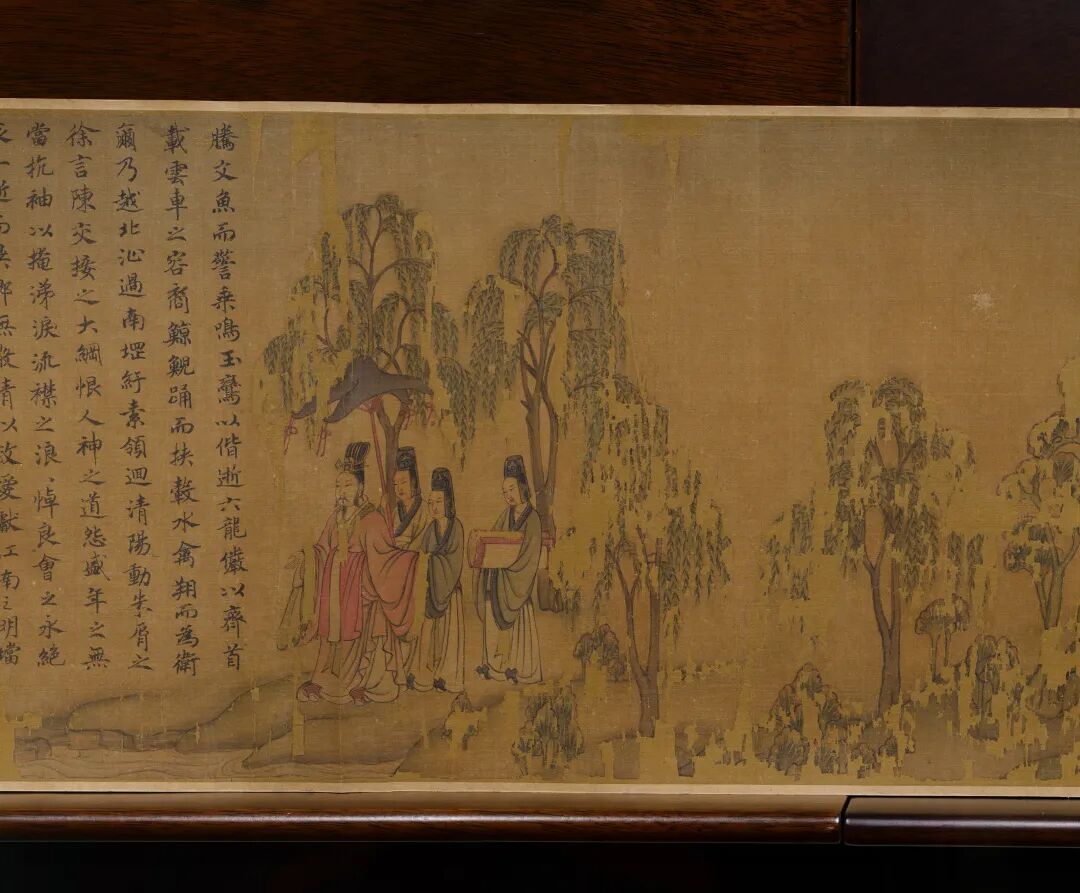 騰文魚而警乘鳴玉鸞以偕逝六龍儼以齊首
載雲車之容裔鯨鯢踊而挾轂水禽翔而為衛
爾乃越北沚過南堽紆素領迴清陽動朱脣之
徐言陳交接之大綱恨人神之道怨盛年之無
當抗袖以掩涕淚流襟之浪、悼良會之永絕
一逝而異鄉無微情以效愛獻江南之明璫